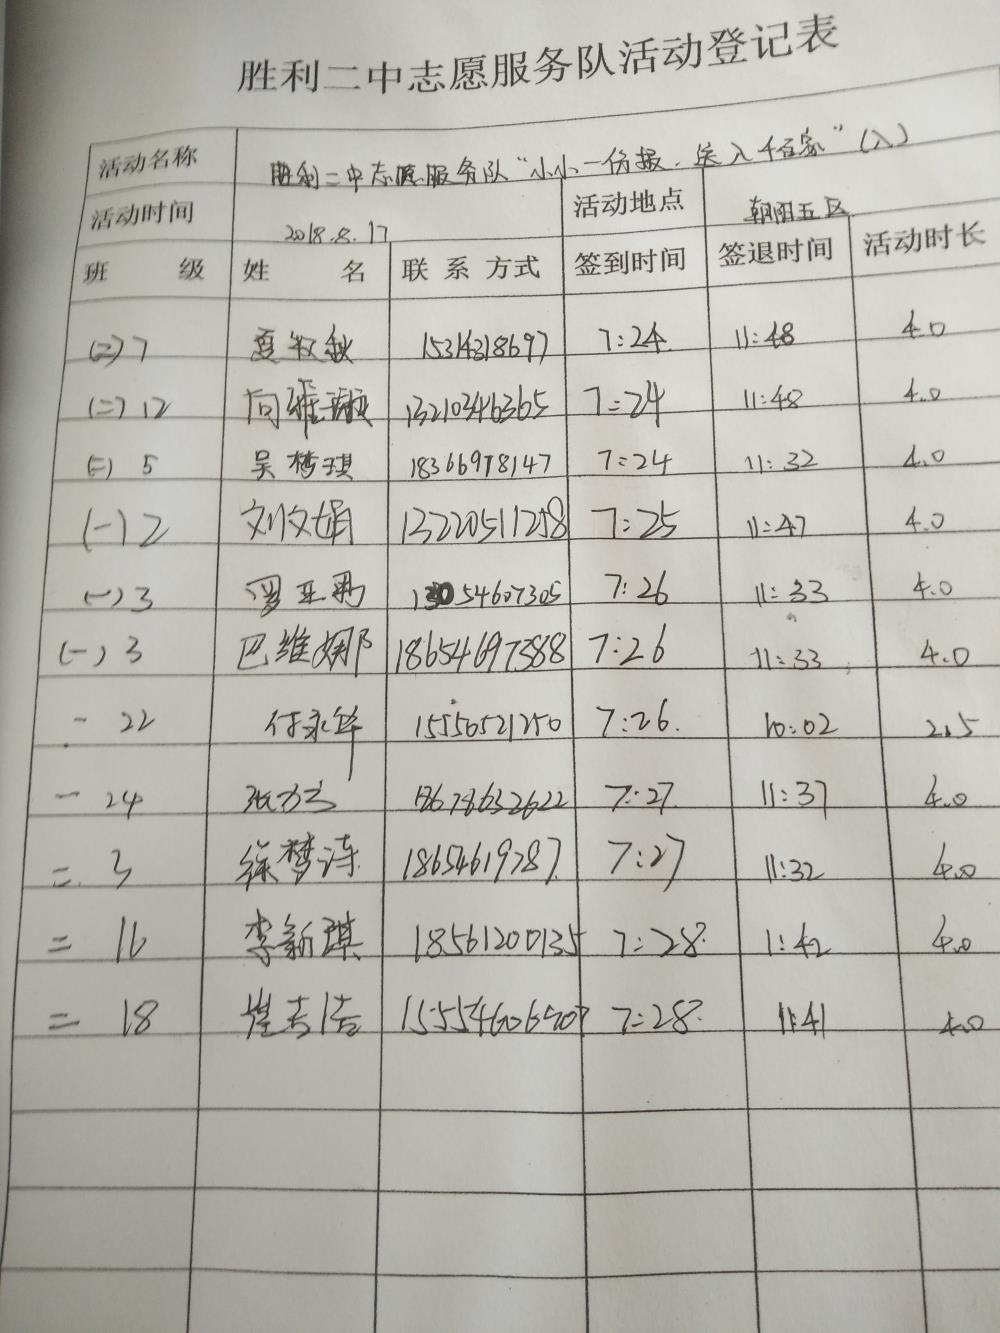 胜利二中志愿服务队活动登记表
活动名称 胜利二中志愿服务队“小小一份报.送入千百家”(八)
活动时间 2018.8.17 活动地点 朝阳五区
班 级 姓 名 联系方式 签到时间 签退时间 活动时长
(二)7 夏牧秋 15314318697 7:24 11:48 4.0
(二)12 向雅 13210346365 7:24 11:48 4.0
(二) 5 吴梦琪 18366978147 7:24 11:32 4.0
(一)2 刘文娟 13220511258 7:25 11:47 4.0
(一)3 罗亚 13054607305 7:26 11:33 4.0
(一)3 巴维娜 18654697388 7:26 11:33 4.0
一 22 付永华 15550521250 7:26 10:02 2.5
一 24 张方方 18678632622 7:27 11:37 4.0
二 3 徐梦涛 18654619787 7:27 11:32 4.0
二 16 李新琪 18561200135 7:28 1:42 4.0
二 18 崔志洁 7:28 11:41 4.0